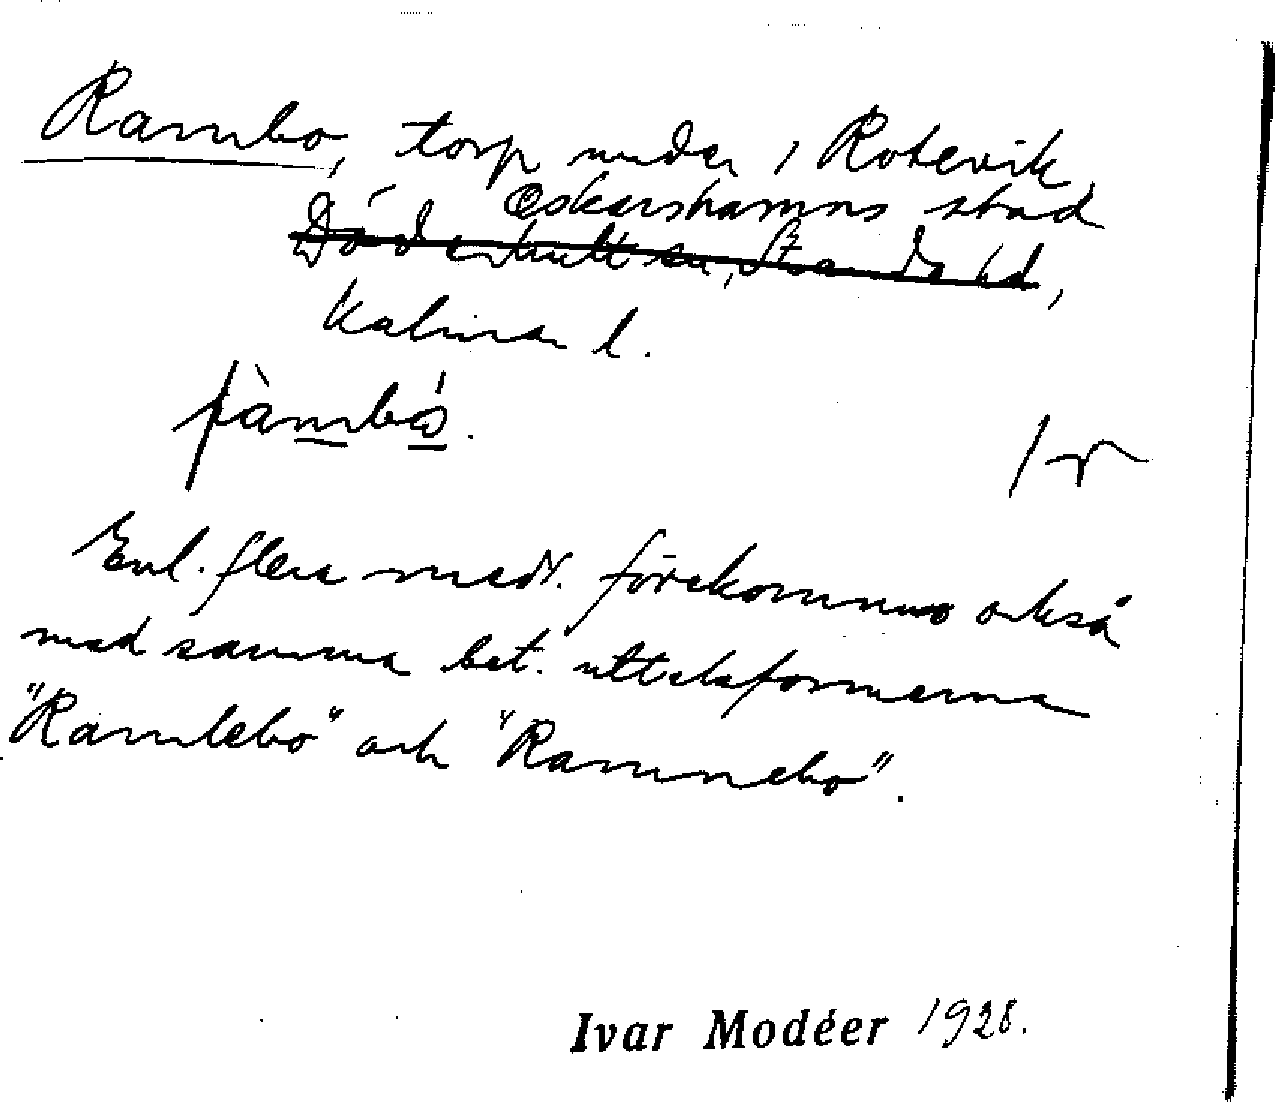 Rambo, torp under 1 Rotevik,
Oskarshamns stad
Döderhults sn, Stranda hd,
Kalmar l.
Enl. flera medd. förekommo också
med samma bet. uttalsformerna
"Ramlebo" och "Ramnebo".
Ivar Modéer 1928.